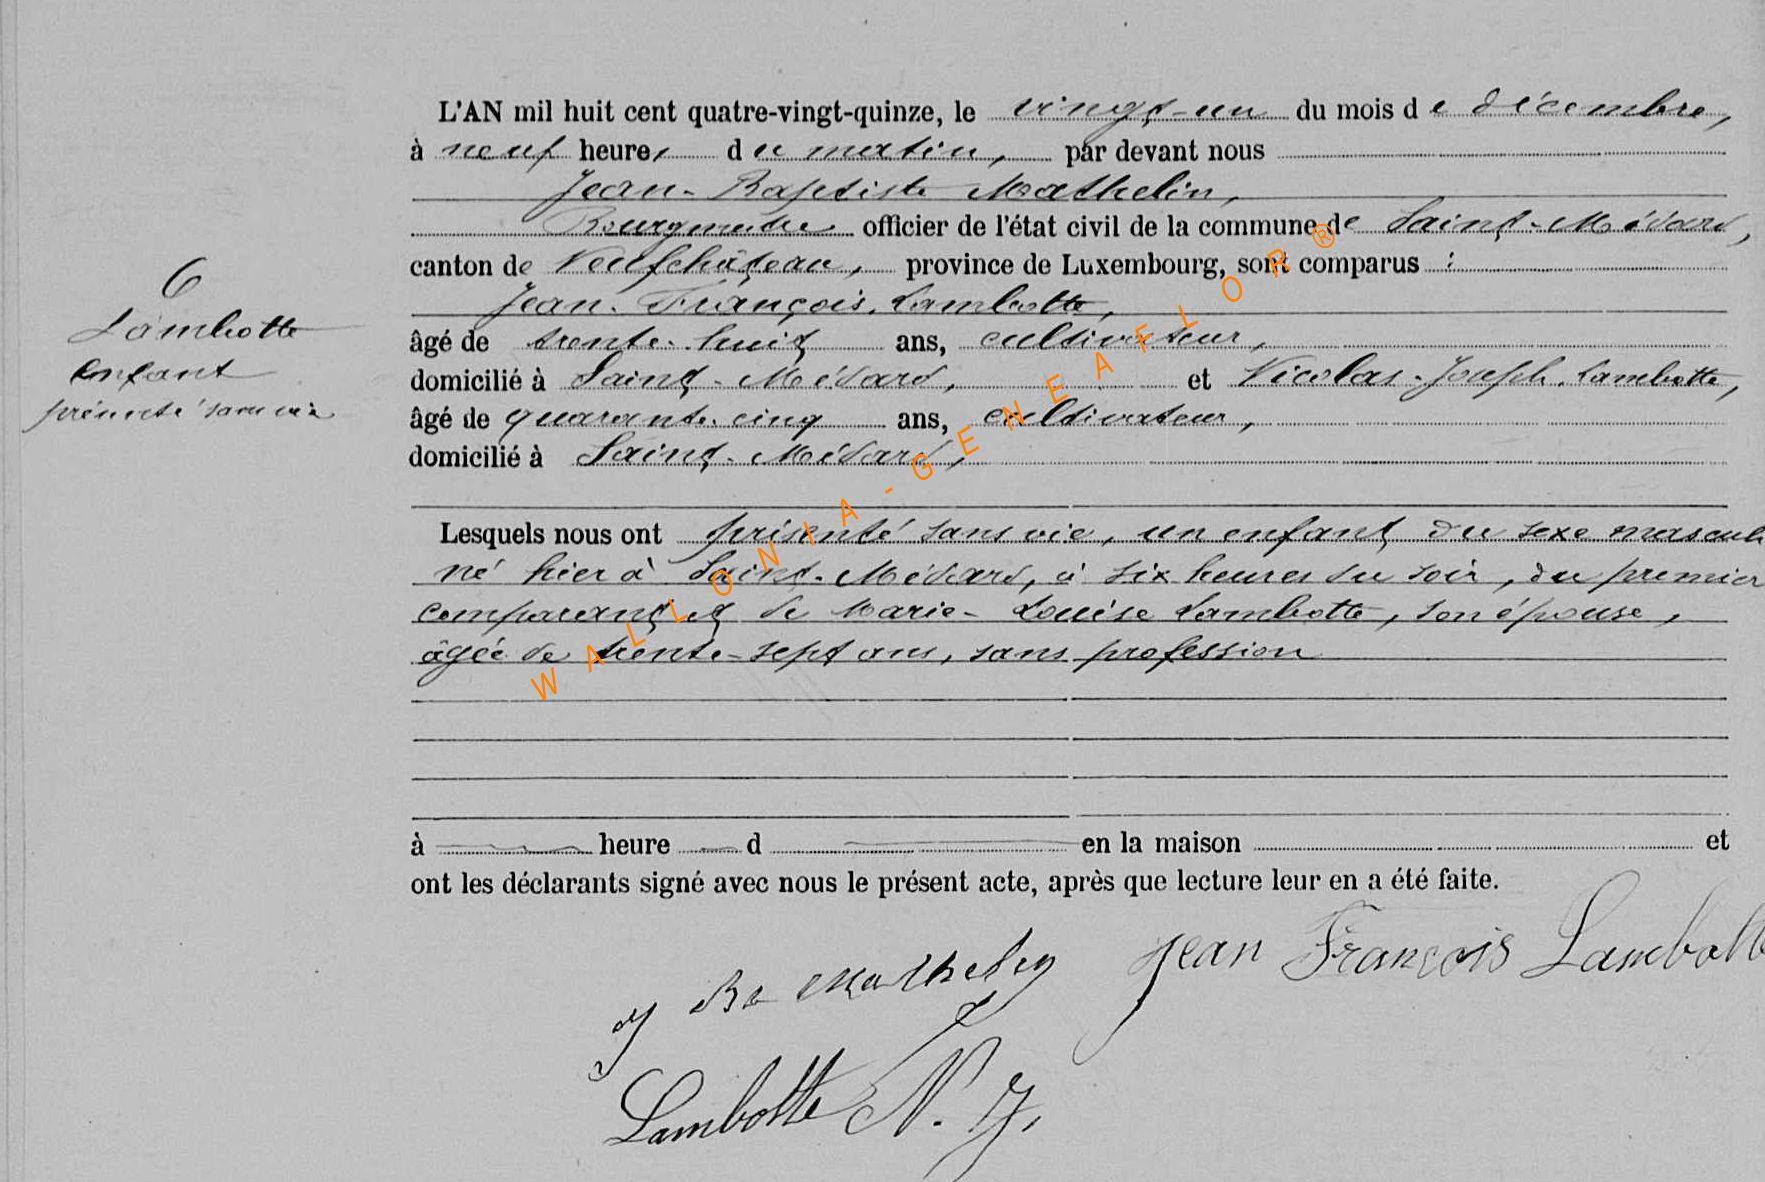 L'AN mil huit cent quatre-vingt-quinze, le vingt-un du mois de décembre,
à neuf heures du matin, par devant nous
Jean-Baptiste Mathelin,
Bourgmestre officier de l'état civil de la commune de Saint-Médard,
canton de Neufchâteau, province de Luxembourg, sont comparus :
Jean-François Lambotte,
âgé de trente-huit ans, cultivateur,
domicilié à Saint-Médard, et Nicolas-Joseph Lambotte,
âgé de quarante-cinq ans, cultivateur,
domicilié à Saint-Médard,
6
Lambotte
Enfant
présenté sans vie
Lesquels nous ont présenté sans vie, un enfant du sexe masculi
né hier à Saint-Médard, à six heures du soir, du premier
comparant et de Marie-Louise Lambotte, son épouse,
âgée de trente-sept ans, sans profession
à heure d en la maison et
ont les déclarants signé avec nous le présent acte, après que lecture leur en a été faite.
J Bte Mathelin Jean François Lambott
Lambotte N. J.
WALLONIA-GENEAFLOR®